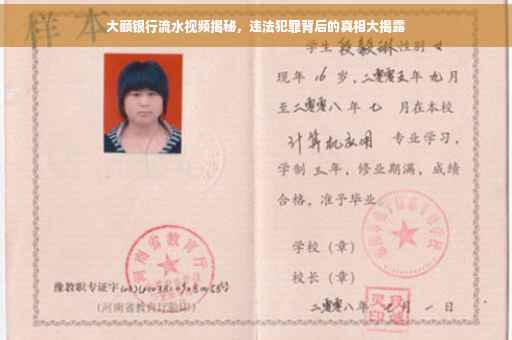 大硕银行流水视频揭秘，违法犯罪背后的真相大揭露
样本
学生 段毅琳 性别
现年 16 岁，二零零五年 九月
至二零零八年 七 月在本校
计算机应用 专业学习，
学制 三 年，修业期满，成绩
合格，准予毕业
学校（章）
校长（章）
河南省教育厅
豫教职专证字
（河南省教育厅验印）
二零零八年 七 月 一 日